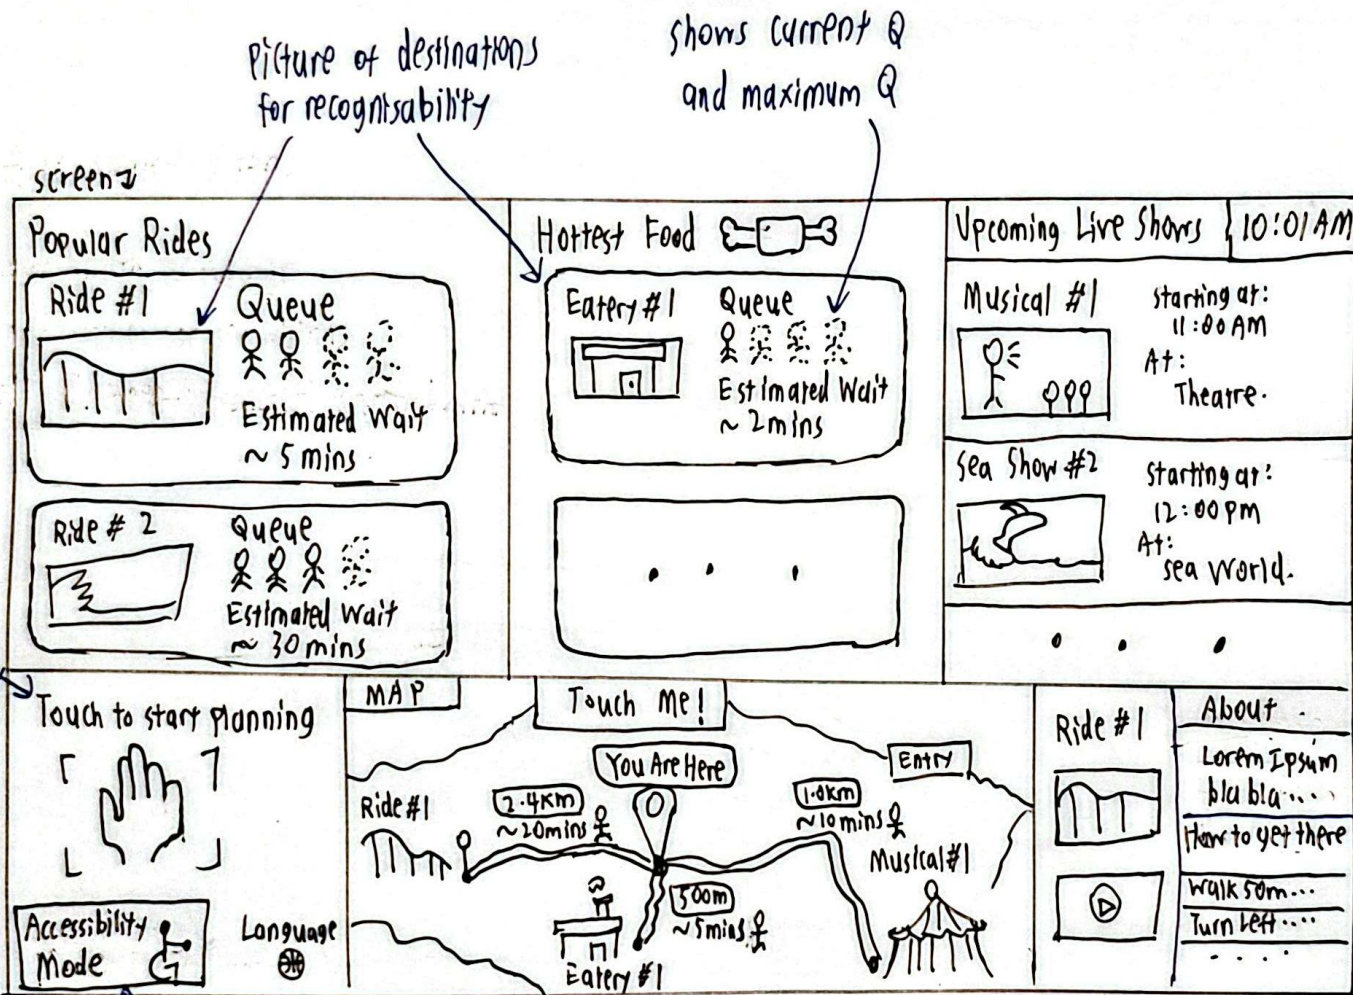 Picture of destinations
for recognisability
shows current Q
and maximum Q
screen
Popular Rides
Ride #1
Queue
Estimated Wait
~ 5 mins
Ride # 2
Queue
Estimated Wait
~ 30 mins
Hottest Food
Eatery #1
Queue
Estimated Wait
~ 2 mins
. . .
Upcoming Live Shows
10:01 AM
Musical #1
starting at:
11:00 AM
At:
Theatre.
Sea Show #2
starting at:
12:00 pm
At:
Sea World.
. . .
Touch to start planning
Accessibility
Mode
Language
MAP
Touch Me!
You Are Here
Entry
Ride #1
2.4km
~20mins
1.0km
~10mins
Musical #1
500m
~5mins
Eatery #1
Ride #1
About .
Lorem Ipsum
bla bla....
How to get there
Walk 50m...
Turn Left ....
. . . .